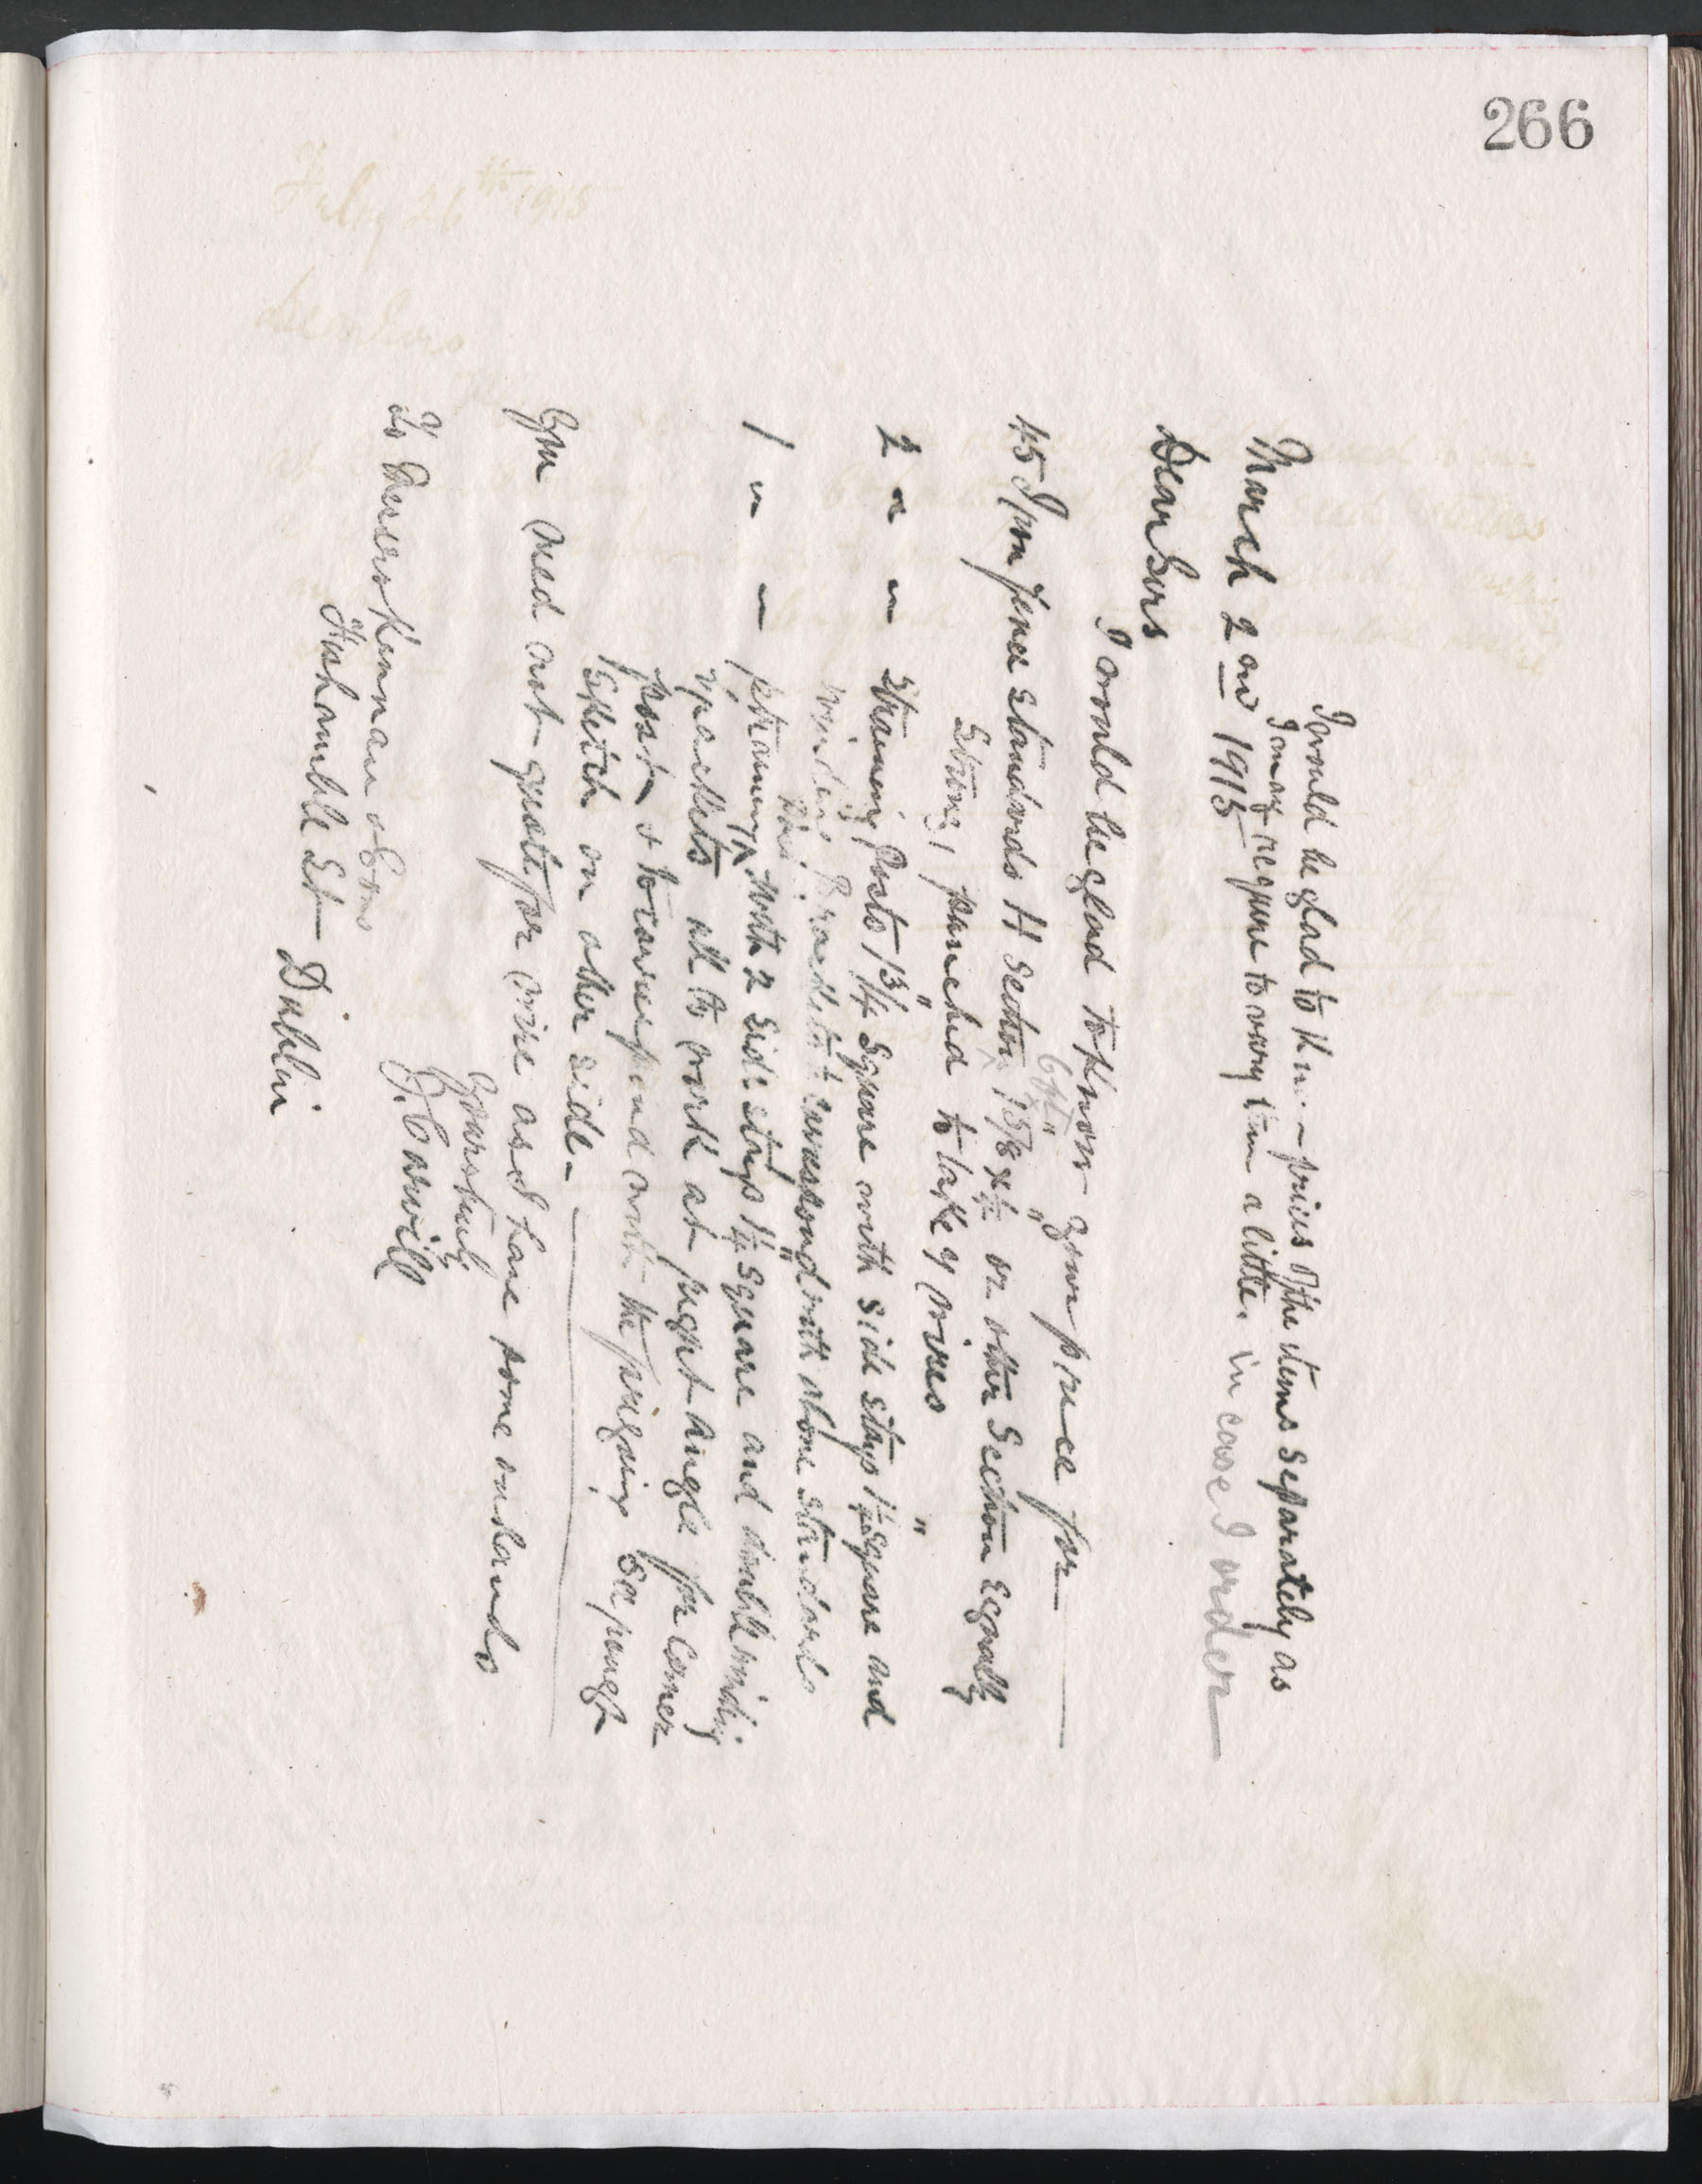 266
I would be glad to know prices of the items separately as
I may require to vary them a little, in case I order
March 2nd 1915
Dear Sirs
I would be glad to know your price for
6ft
45 Iron fence standards H section 1 5/8" x 1/2" or other section equally
strong, punched to take 7 wires
2 " " straining posts 1 3/4" square with side stays 1 1/4" square and
winding Brackets to correspond with above standards
1 " " straining post with 2 side stays 1 1/4" square and double winding
brackets all to work at right angle for corner
post & to correspond with the foregoing see rough
sketch on other side
You need not quote for wire as I have some on hands
Yours truly
J. Carvill
To Messrs Kennan & Sons
Fishamble St Dublin
July 26th 1915
Dear Sirs